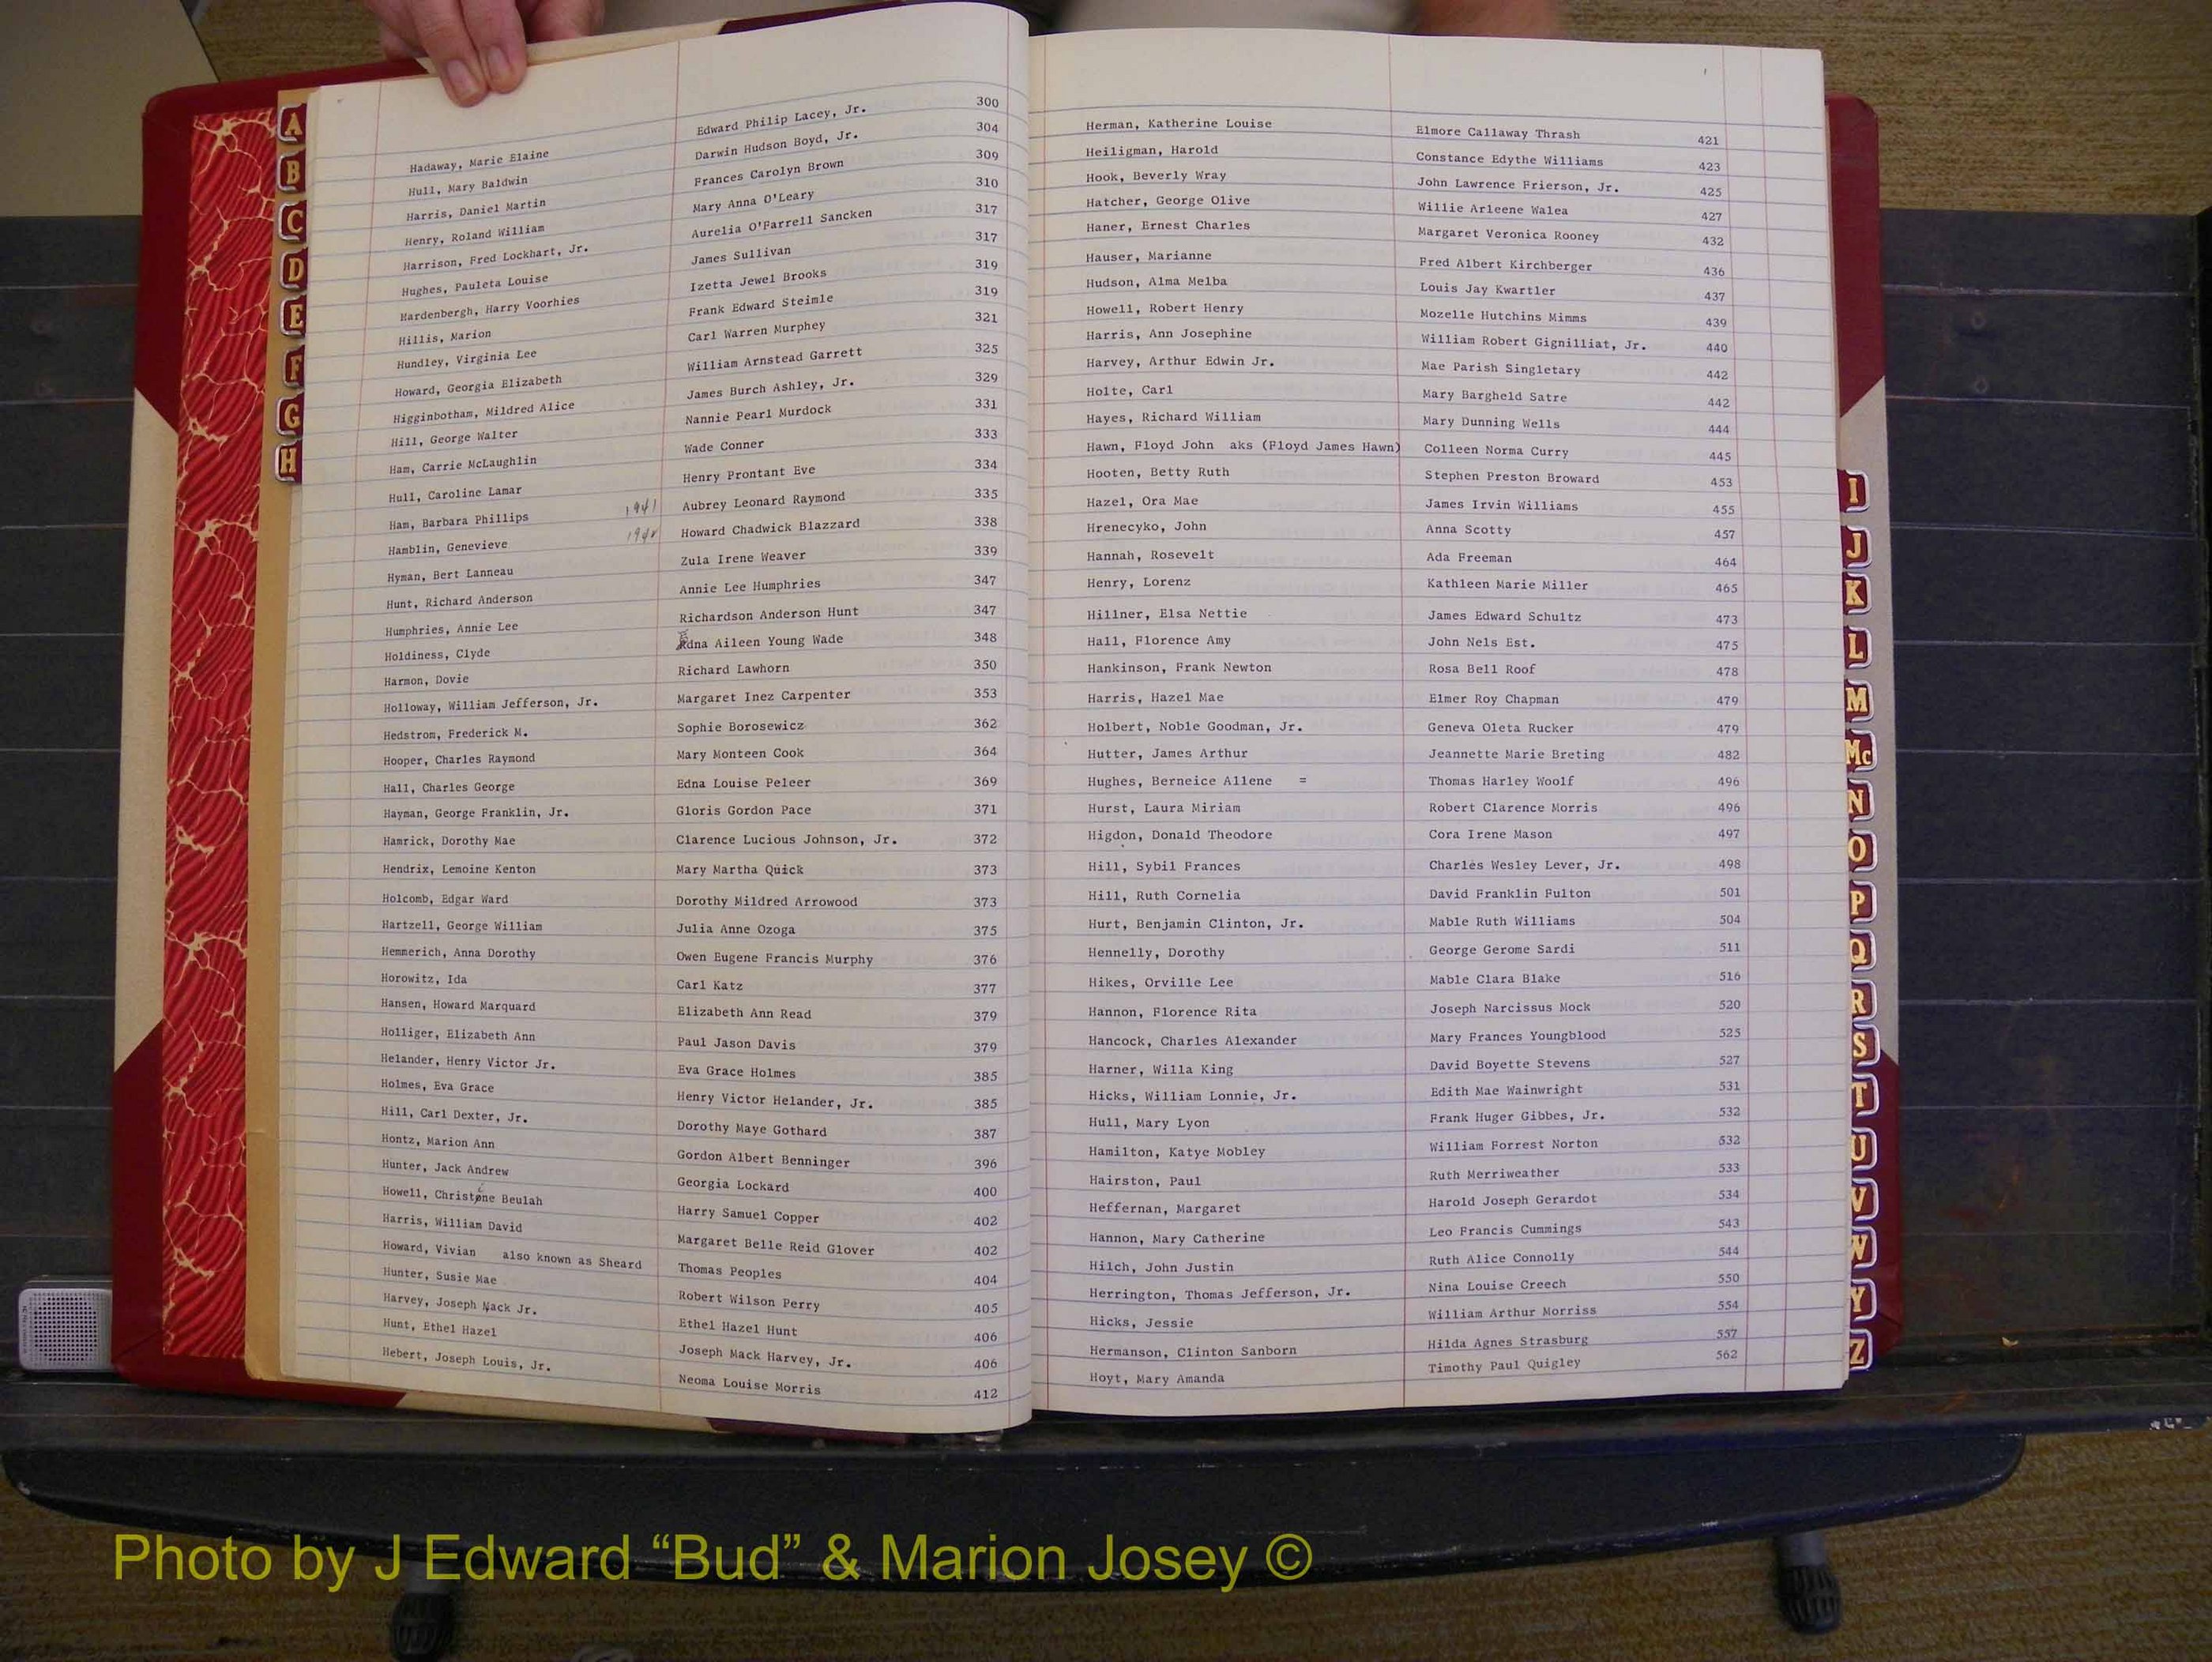 A
B
C
D
E
F
G
H
Hadaway, Marie Elaine Edward Philip Lacey, Jr. 300
Hull, Mary Baldwin Darwin Hudson Boyd, Jr. 304
Harris, Daniel Martin Frances Carolyn Brown 309
Henry, Roland William Mary Anna O'Leary 310
Harrison, Fred Lockhart, Jr. Aurelia O'Farrell Sancken 317
Hughes, Pauleta Louise James Sullivan 317
Hardenbergh, Harry Voorhies Izetta Jewel Brooks 319
Hillis, Marion Frank Edward Steimle 319
Hundley, Virginia Lee Carl Warren Murphey 321
Howard, Georgia Elizabeth William Arnstead Garrett 325
Higginbotham, Mildred Alice James Burch Ashley, Jr. 329
Hill, George Walter Nannie Pearl Murdock 331
Ham, Carrie McLaughlin Wade Conner 333
Hull, Caroline Lamar Henry Prontant Eve 334
Ham, Barbara Phillips 1941 Aubrey Leonard Raymond 335
Hamblin, Genevieve Howard Chadwick Blazzard 338
Hyman, Bert Lanneau Zula Irene Weaver 339
Hunt, Richard Anderson Annie Lee Humphries 347
Humphries, Annie Lee Richardson Anderson Hunt 347
Holdiness, Clyde Edna Aileen Young Wade 348
Harmon, Dovie Richard Lawhorn 350
Holloway, William Jefferson, Jr. Margaret Inez Carpenter 353
Hedstrom, Frederick M. Sophie Borosewicz 362
Hooper, Charles Raymond Mary Monteen Cook 364
Hall, Charles George Edna Louise Peleer 369
Hayman, George Franklin, Jr. Gloris Gordon Pace 371
Hamrick, Dorothy Mae Clarence Lucious Johnson, Jr. 372
Hendrix, Lemoine Kenton Mary Martha Quick 373
Holcomb, Edgar Ward Dorothy Mildred Arrowood 373
Hartzell, George William Julia Anne Ozoga 375
Hemmerich, Anna Dorothy Owen Eugene Francis Murphy 376
Horowitz, Ida Carl Katz 377
Hansen, Howard Marquard Elizabeth Ann Read 379
Holliger, Elizabeth Ann Paul Jason Davis 379
Helander, Henry Victor Jr. Eva Grace Holmes 385
Holmes, Eva Grace Henry Victor Helander, Jr. 385
Hill, Carl Dexter, Jr. Dorothy Maye Gothard 387
Hontz, Marion Ann Gordon Albert Benninger 396
Hunter, Jack Andrew Georgia Lockard 400
Howell, Christine Beulah Harry Samuel Copper 402
Harris, William David Margaret Belle Reid Glover 402
Howard, Vivian also known as Sheard Thomas Peoples 404
Hunter, Susie Mae Robert Wilson Perry 405
Harvey, Joseph Mack Jr. Ethel Hazel Hunt 406
Hunt, Ethel Hazel Joseph Mack Harvey, Jr. 406
Hebert, Joseph Louis, Jr. Neoma Louise Morris 412
Herman, Katherine Louise Elmore Callaway Thrash 421
Heiligman, Harold Constance Edythe Williams 423
Hook, Beverly Wray John Lawrence Frierson, Jr. 425
Hatcher, George Olive Willie Arleene Walea 427
Haner, Ernest Charles Margaret Veronica Rooney 432
Hauser, Marianne Fred Albert Kirchberger 436
Hudson, Alma Melba Louis Jay Kwartler 437
Howell, Robert Henry Mozelle Hutchins Mimms 439
Harris, Ann Josephine William Robert Gignilliat, Jr. 440
Harvey, Arthur Edwin Jr. Mae Parish Singletary 442
Holte, Carl Mary Bargheld Satre 442
Hayes, Richard William Mary Dunning Wells 444
Hawn, Floyd John aks (Floyd James Hawn) Colleen Norma Curry 445
Hooten, Betty Ruth Stephen Preston Broward 453
Hazel, Ora Mae James Irvin Williams 455
Hrenecyko, John Anna Scotty 457
Hannah, Rosevelt Ada Freeman 464
Henry, Lorenz Kathleen Marie Miller 465
Hillner, Elsa Nettie James Edward Schultz 473
Hall, Florence Amy John Nels Est. 475
Hankinson, Frank Newton Rosa Bell Roof 478
Harris, Hazel Mae Elmer Roy Chapman 479
Holbert, Noble Goodman, Jr. Geneva Oleta Rucker 479
Hutter, James Arthur Jeannette Marie Breting 482
Hughes, Berneice Allene = Thomas Harley Woolf 496
Hurst, Laura Miriam Robert Clarence Morris 496
Higdon, Donald Theodore Cora Irene Mason 497
Hill, Sybil Frances Charles Wesley Lever, Jr. 498
Hill, Ruth Cornelia David Franklin Fulton 501
Hurt, Benjamin Clinton, Jr. Mable Ruth Williams 504
Hennelly, Dorothy George Gerome Sardi 511
Hikes, Orville Lee Mable Clara Blake 516
Hannon, Florence Rita Joseph Narcissus Mock 520
Hancock, Charles Alexander Mary Frances Youngblood 525
Harner, Willa King David Boyette Stevens 527
Hicks, William Lonnie, Jr. Edith Mae Wainwright 531
Hull, Mary Lyon Frank Huger Gibbes, Jr. 532
Hamilton, Katye Mobley William Forrest Norton 532
Hairston, Paul Ruth Merriweather 533
Heffernan, Margaret Harold Joseph Gerardot 534
Hannon, Mary Catherine Leo Francis Cummings 543
Hilch, John Justin Ruth Alice Connolly 544
Herrington, Thomas Jefferson, Jr. Nina Louise Creech 550
Hicks, Jessie William Arthur Morriss 554
Hermanson, Clinton Sanborn Hilda Agnes Strasburg 557
Hoyt, Mary Amanda Timothy Paul Quigley 562
I
J
K
L
M
Mc
N
O
P
Q
R
S
T
U
V
W
Y
Z
Photo by J Edward “Bud” & Marion Josey ©